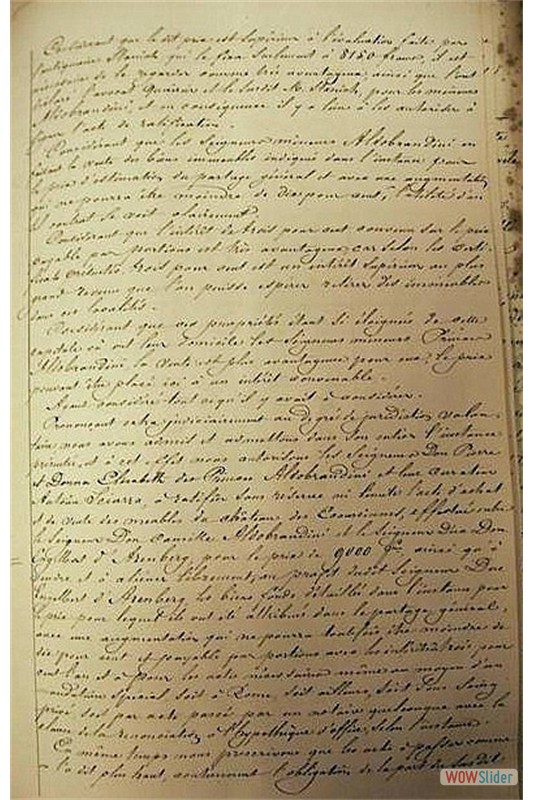 Considérant que le dit prix est supérieur à l'évaluation faite par
qui le fixa seulement à 8150 francs, il est
de la première somme très avantageux ainsi que l'ont
l'avocat et le susdit M. pour les mineurs
Aldobrandini et en conséquence il y a lieu à les autoriser à
l'acte de ratification.
Considérant que les Seigneurs mineurs Aldobrandini en
la vente des biens immeubles indiqués dans l'instance pour
le prix d'estimation du partage général et avec une augmentation
qui ne pourra être moindre de dix pour cent, l'utilité d'un
tel contrat se voit clairement.
Considérant que l'intérêt de trois pour cent convenu sur le prix
payable par portions est très avantageux car selon les
trois pour cent est un intérêt supérieur au plus
grand revenu que l'on puisse espérer retirer des immeubles
dans ces localités.
Considérant que ces propriétés étant si éloignées de cette
capitale où ont leur domicile les Seigneurs mineurs Princes
Aldobrandini la vente est plus avantageuse pour eux, le prix
pouvant être placé ici à un intérêt convenable.
Ayant considéré tout ce qu'il y avait à considérer.
Prononçant extra judiciairement au degré de juridiction volon-
taire nous avons admis et admettons dans son entier l'instance
présentée et à cet effet nous autorisons les Seigneurs Don
et Donna Elisabeth des Princes Aldobrandini et leur curateur
Sciarra, à ratifier sans réserve ni limite l'acte d'achat
et de vente des meubles du château des Ecaussinnes, effectué entre
le Seigneur Don Camille Aldobrandini et le Seigneur Duc Don
Engelbert d'Arenberg pour le prix de 9000 frs ainsi qu'à
vendre et à aliéner librement, au profit dudit Seigneur Duc
Engelbert d'Arenberg les biens fonds détaillés dans l'instance pour
le prix pour lequel ils ont été attribués dans le partage général,
avec une augmentation qui ne pourra toutefois être moindre de
dix pour cent et payable par portions avec les intérêts trois pour
cent l'an et à passer les actes nécessaires même au moyen d'un
mandataire spécial soit à Rome, soit ailleurs, soit sous seing
privé soit par acte passé par un notaire quelconque avec la
clause de la renonciation à l'hypothèque d'office, selon l'instance.
En même temps nous prescrivons que les actes à passer comme
l'a dit plus haut, contiennent l'obligation de la part du susdit
WOWSlider